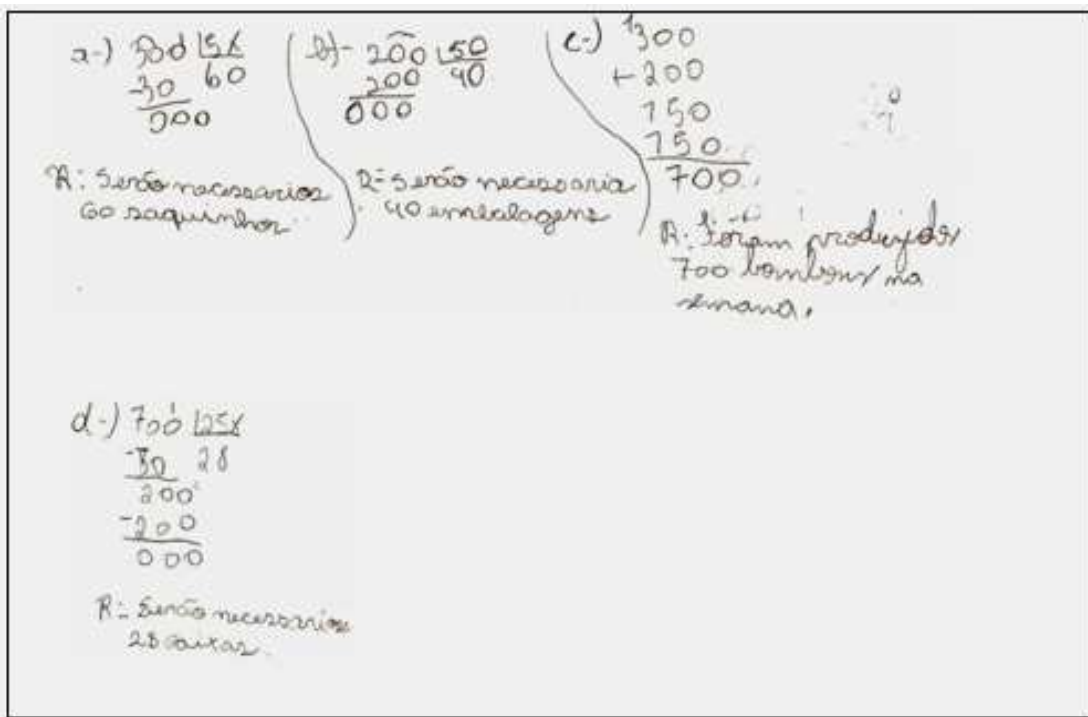 a-) 300 5
-30 60
000
R: Serão necessarios
60 saquinhos
b)- 200 50
200 40
000
R= Serão necessaria
40 embalagens
c-) 300
+ 200
150
150
700
R: Foram produzidos
700 bombons na
semana.
d-) 700 25
-50 28
200
-200
000
R= Serão necessarios
28 caixas.